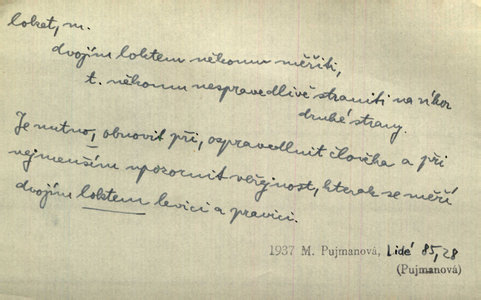 loket, m.
dvojím loktem někomu měřiti,
t. někomu nespravedlivě straniti na úkor
druhé strany.
Je nutno, obnovit při, ospravedlnit člověka a při
nejmenším upozornit veřejnost, kterak se měří
dvojím loktem levici a pravici.
1937 M. Pujmanová, Lidé 85,28
(Pujmanová)